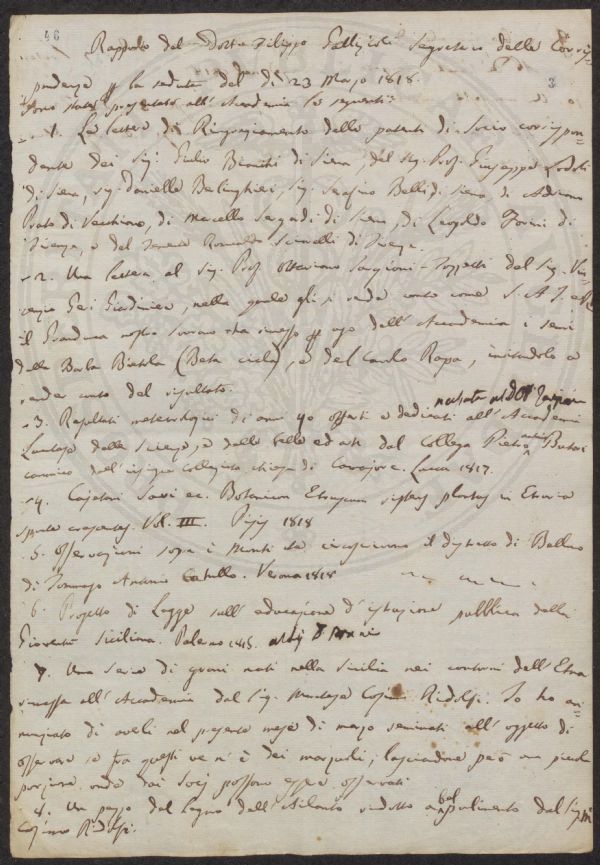 46
Rapporto del Dott.e Filippo Gallizioli Segretario delle Corris-
pondenze p la seduta del dì 23 Marzo 1818
3
Sono state presentate all'Accademia le seguenti
1. Le lettere di Ringraziamento delle patenti di Socio corrispon-
dente dei Sig.i Giulio Bianchi di Siena, del Sig. Prof. Giuseppe Lodoli
di Siena, Sig. Daniello Berlinghieri, Sig. Serafino Belli di Siena, di Adriano
Prato di Vecchiano, di Marcello Sergardi di Siena, di Leopoldo di
Firenze, e del Tenente Romualdo di Firenze.
2. Una lettera al Sig. Prof. Ottaviano Targioni-Tozzetti del Sig. Vin-
cenzio Geri Giardiniere, nella quale gli si rende conto come S. A. I. e R.
il Granduca nostro Sovrano ha rimesso p uso dell'Accademia i semi
della Barba Bietola (Beta cicla), e del Cavolo Rapa, invitandolo a
render conto del risultato.
3. Resultati meteorologici di anni 40 offerti e dedicati all'Accademia
Lucchese delle Scienze, e delle belle ed arti dal Collega Pietro Butori
canonico dell'insigne collegiata chiesa di . Lucca 1817.
4. Cajetani Savi ec. Botanicum Etruscum sistens plantas in Etruria
sponte crescentes. Vol. III. Pisis 1818
5. Osservazioni sopra i Monti che circoscrivono il distretto di Belluno
di Tommaso Antonio Catullo. Verona 1818
6. Progetto di Legge sull'educazione d'istruzione pubblica della
Gioventù Siciliana. Palermo 1815.
7. Una serie di grani nati nella Sicilia nei contorni dell'Etna
rimessa all'Accademia dal Sig. Marchese Cosimo Ridolfi. Io ho an-
nunziato di averli nel presente mese di marzo seminati all'oggetto di
osservare se fra questi ve n'è dei marzuoli, lasciandone però una piccola
porzione onde dai Socj possono essere osservati.
8. Un pezzo del legno dell'Ailanto ridotto a bel pulimento dal Sig. M.
Cosimo Ridolfi.